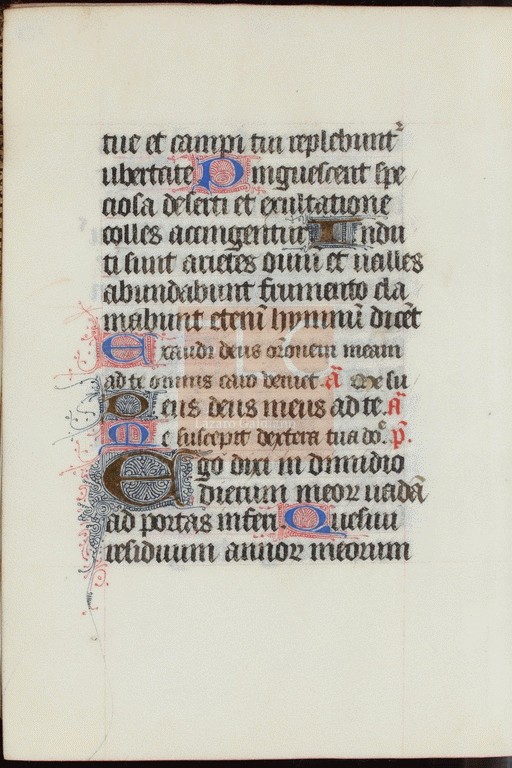 tue et campi tui replebunt᷑
ubertate Pinguescent spe
ciosa deserti et exultatione
colles accingentur Indu
ti sunt arietes ouiū et ualles
abundabunt frumento cla
mabunt eteni hymnū dicēt
Exaudi deus oronem meam
ad te omnis caro veniet. ā su
Deus deus meus ad te. ā
Me suscepit dextera tua do᷑. p̄.
Ego dixi in dimidio
dierum meoꝝ uadā
ad portas inferi Quesiui
residuum annoꝝ meorum
Lázaro Galdiano